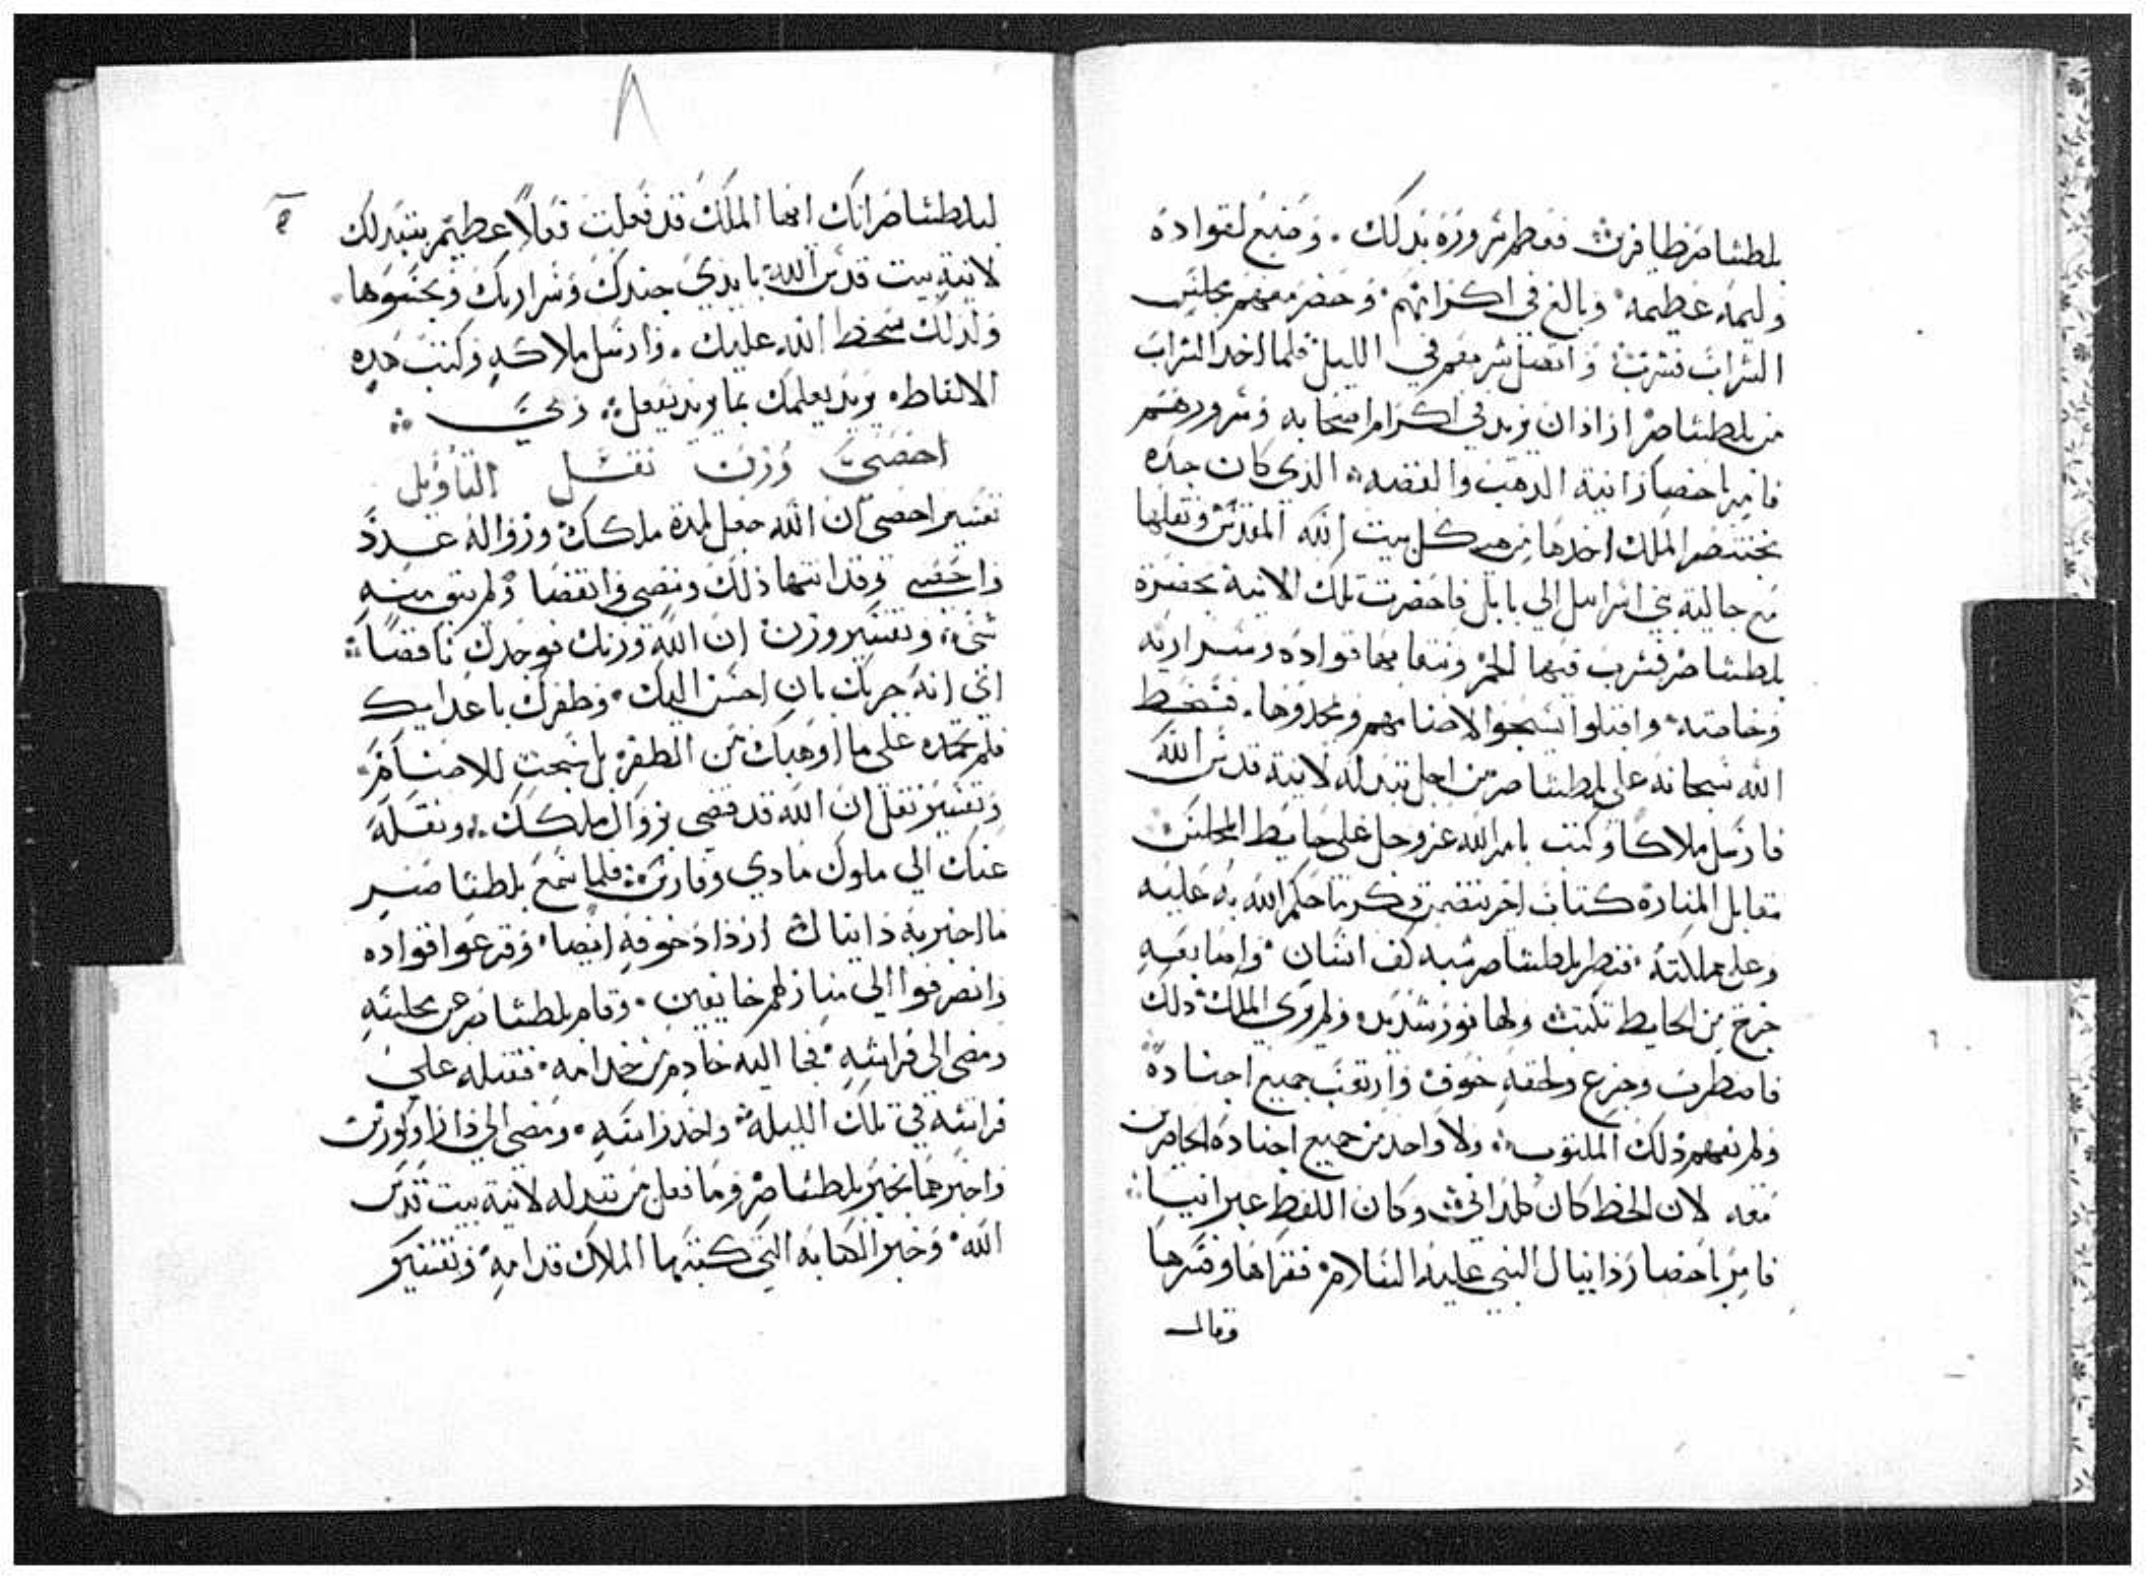 بلطشاصر ظافرين فعظم سروره بدلك . وصنع لقواده
وليمه عظيمه وبالغ في اكرامهم وحضر معهم مجلس
الشراب فشرب واتصل شربهم في الليل فلما اخد الشراب
من بلطشاصر اراد ان يزيد في اكرام اصحابه وسرورهم
فامر باحضار انية الدهب والفضه الذي كان جده
بختنصر الملك اخدها من هيكل بيت الله المقدس ونقلها
مع جالية بني اسرايل الي بابل فاحضرت تلك الانية بحضرة
بلطشاصر فشرب فيها الخمر وسقا بها قواده وسراريه
وخاصته واقبلوا يسبحوا لاصنامهم ويمجدوها . فسخط
الله سبحانه علي بلطشاصر من اجل تبدله لانية قدس الله
فارسل ملاكا وكتب بامر الله عز وجل علي حايط المجلس
مقابل المناره كتاب اخر يتضمن دكر ما حكم الله به عليه
وعلي مملكته فنظر بلطشاصر شبه كف انسان واصابعه
خرج من الحايط تكتب ولها نور شديد ولم روي الملك دلك
فاضطرب وجزع ولحقه خوف وارتعب جميع اجناده
ولم يفهم دلك المكتوب ولا واحد من جميع اجناده الحاضرين
معه لان الخط كان كلداني وكان اللفظ عبرانيا
فامر باحضار دانيال النبي عليه السلام فقراها وفسرها
وقال
٨
لبلطشاصر انك ايها الملك قد فعلت فعلا عظيم بتبدلك
لانية بيت قدس الله بايدي جندك وسراريك
ولدلك سخط الله عليك . وارسل ملاكه وكتب هده
الالفاظ يريد يعلمك بما يريد يفعل وهي
احصي وزن نقل التاويل
تفسير احصي ان الله جعل لمدة ملكك وزواله عدد
واحصي وقد انتها دلك ومضي وانقضا ولم يبق منه
شي وتفسير وزن ان الله وزنك فوجدك ناقصا
اي انه جربك بان احسن اليك وظفرك باعدايك
فلم تحمده علي ما اوهبك من الظفر بل سبحت للاصنام
وتفسير نقل ان الله قد قضي بزوال ملكك ونقله
عنك الي ملوك مادي وفارس فلما سمع بلطشاصر
ما اخبر به دانيال ازداد خوفه ايضا وفزعوا قواده
وانصرفوا الي منازلهم خايفين وقام بلطشاصر من مجلسه
ومضي الي فراشه فجا اليه خادم من خدامه فقتله علي
فراشه في تلك الليله واخد راسه ومضي الي دارا وكورش
واخبرهما بخبر بلطشاصر وما فعل من تبدله لانية بيت قدس
الله وخبر الكتابه التي كتبها الملاك قدامه وتفسير